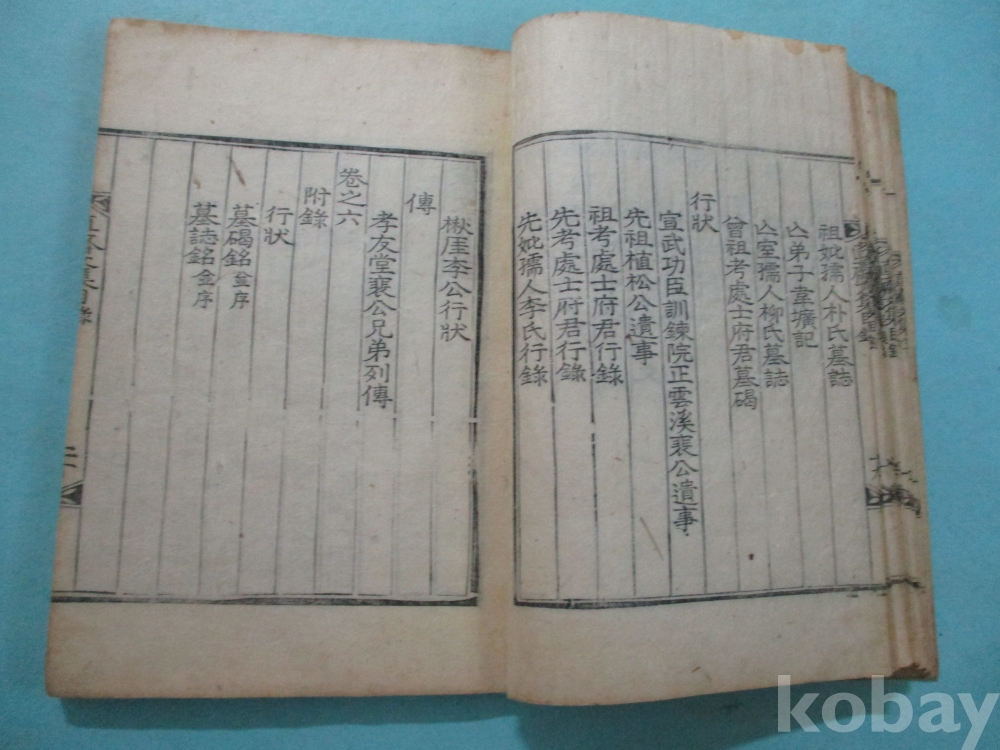 祖妣孺人朴氏墓誌
亾弟子韋壙記
亾室孺人柳氏墓誌
曾祖考處士府君墓碣
行狀
宣武功臣訓鍊院正雲溪裵公遺事
先祖植松公遺事
祖考處士府君行錄
先考處士府君行錄
先妣孺人李氏行錄
楸厓李公行狀
傳
孝友堂裵公兄弟列傳
卷之六
附錄
行狀
墓碣銘 并序
墓誌銘 并序
二
kobay